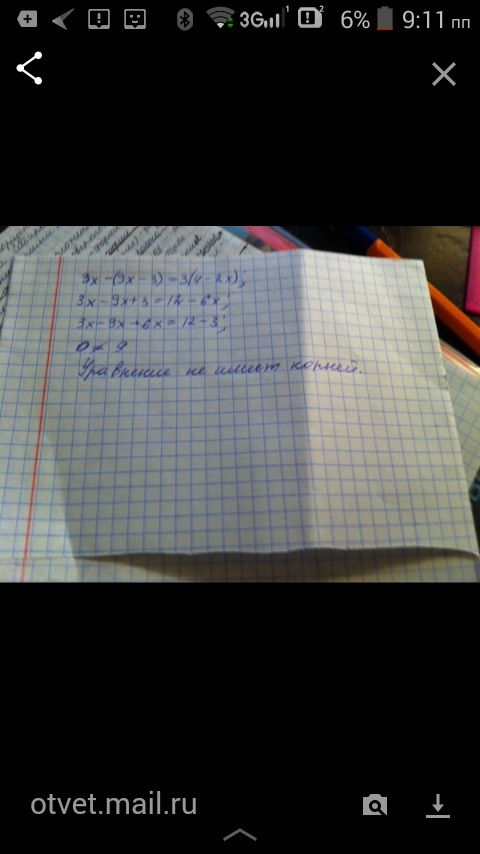 3G 1 2 6% 9:11 пп
3x-(9x-3)=3(4-2x);
3x-9x+3=12-6x;
3x-9x+6x=12-3;
0≠9
Уравнение не имеет корней.
otvet.mail.ru